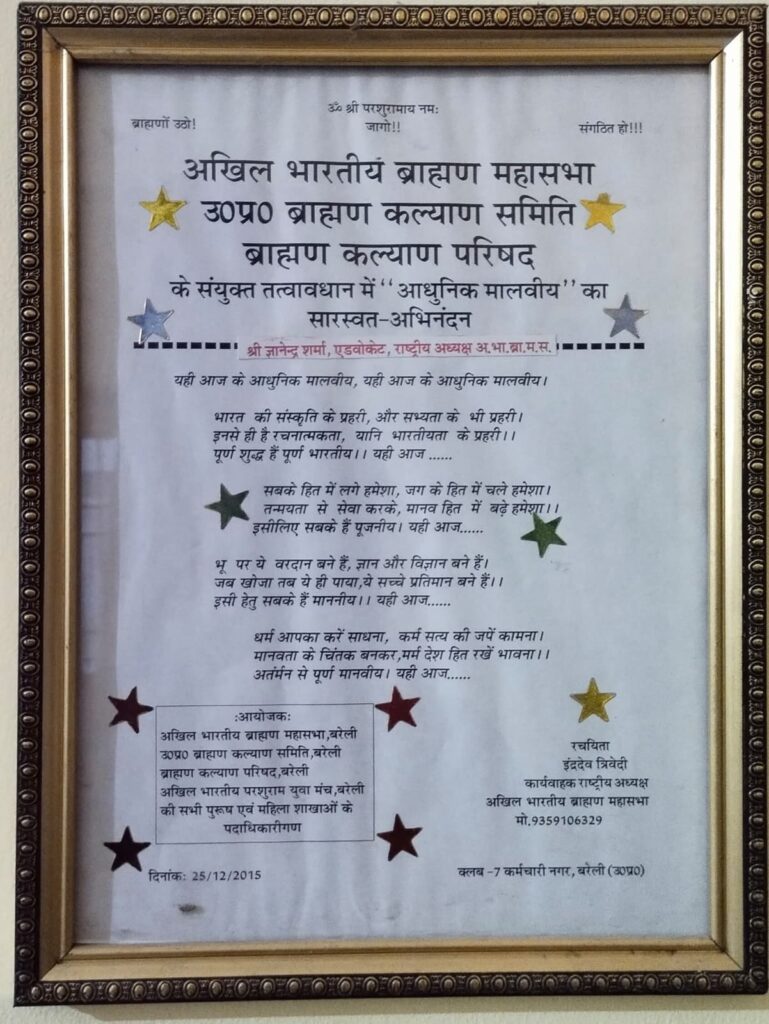 ॐ श्री परशुरामाय नमः
ब्राह्मणों उठो! जागो!! संगठित हो!!!
अखिल भारतीय ब्राह्मण महासभा
उ0प्र0 ब्राह्मण कल्याण समिति
ब्राह्मण कल्याण परिषद
के संयुक्त तत्वावधान में ‘‘आधुनिक मालवीय’’ का
सारस्वत-अभिनंदन
श्री ज्ञानेन्द्र शर्मा, एडवोकेट, राष्ट्रीय अध्यक्ष अ.भा.ब्रा.म.स.
यही आज के आधुनिक मालवीय, यही आज के आधुनिक मालवीय।
भारत की संस्कृति के प्रहरी, और सभ्यता के भी प्रहरी।
इनसे ही है रचनात्मकता, यानि भारतीयता के प्रहरी।।
पूर्ण शुद्ध हैं पूर्ण भारतीय।। यही आज ......
सबके हित में लगे हमेशा, जग के हित में चले हमेशा।
तन्मयता से सेवा करके, मानव हित में बढ़े हमेशा।।
इसीलिए सबके हैं पूजनीय। यही आज......
भू पर ये वरदान बने हैं, ज्ञान और विज्ञान बने हैं।
जब खोजा तब ये ही पाया,ये सच्चे प्रतिमान बने हैं।।
इसी हेतु सबके हैं माननीय।। यही आज......
धर्म आपका करें साधना, कर्म सत्य की जपें कामना।
मानवता के चिंतक बनकर,मर्म देश हित रखें भावना।।
अतंर्मन से पूर्ण मानवीय। यही आज......
:आयोजक:
अखिल भारतीय ब्राह्मण महासभा,बरेली
उ0प्र0 ब्राह्मण कल्याण समिति,बरेली
ब्राह्मण कल्याण परिषद,बरेली
अखिल भारतीय परशुराम युवा मंच,बरेली
की सभी पुरूष एवं महिला शाखाओं के
पदाधिकारीगण
रचयिता
इंद्रदेव त्रिवेदी
कार्यवाहक राष्ट्रीय अध्यक्ष
अखिल भारतीय ब्राह्मण महासभा
मो.9359106329
दिनांक: 25/12/2015
क्लब -7 कर्मचारी नगर, बरेली (उ0प्र0)